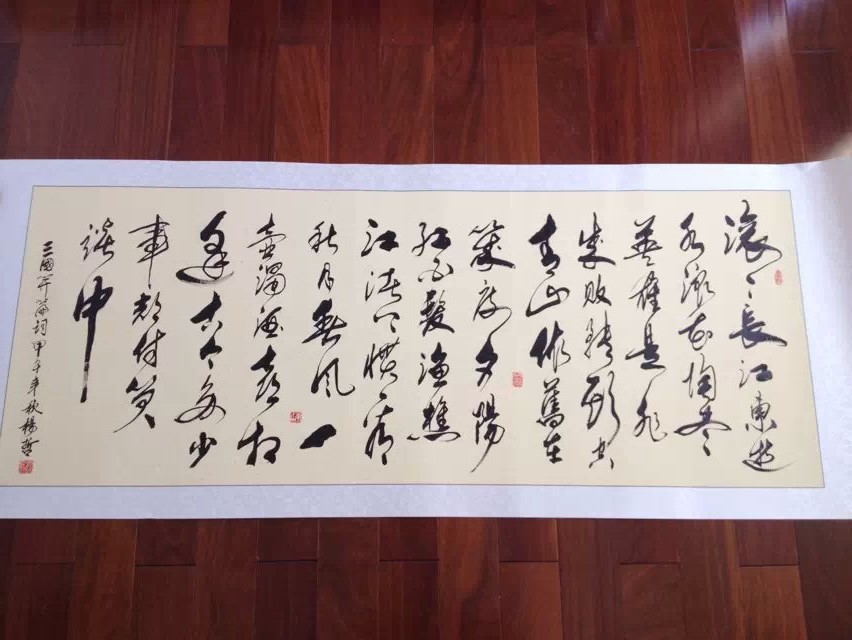 滚々長江東逝
水浪花淘尽
英雄是非
成败轉頭空
青山依舊在
幾度夕陽
红白髮漁樵
江渚上惯看
秋月春风一
壶濁酒喜相
逢古今多少
事都付笑
谈中
三國开篇词甲午年秋楊哲